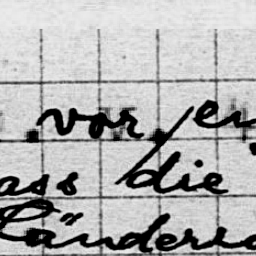 vor, en
ass die
Länders